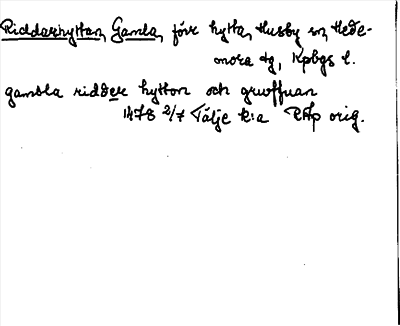 Riddarhyttan, Gamla, förr hytta, Husby sn, Hede-
mora tg, Kpbgs l.
gambla riddere hytton och gruffuan
1478 2/7 Tälje k:a RAp orig.